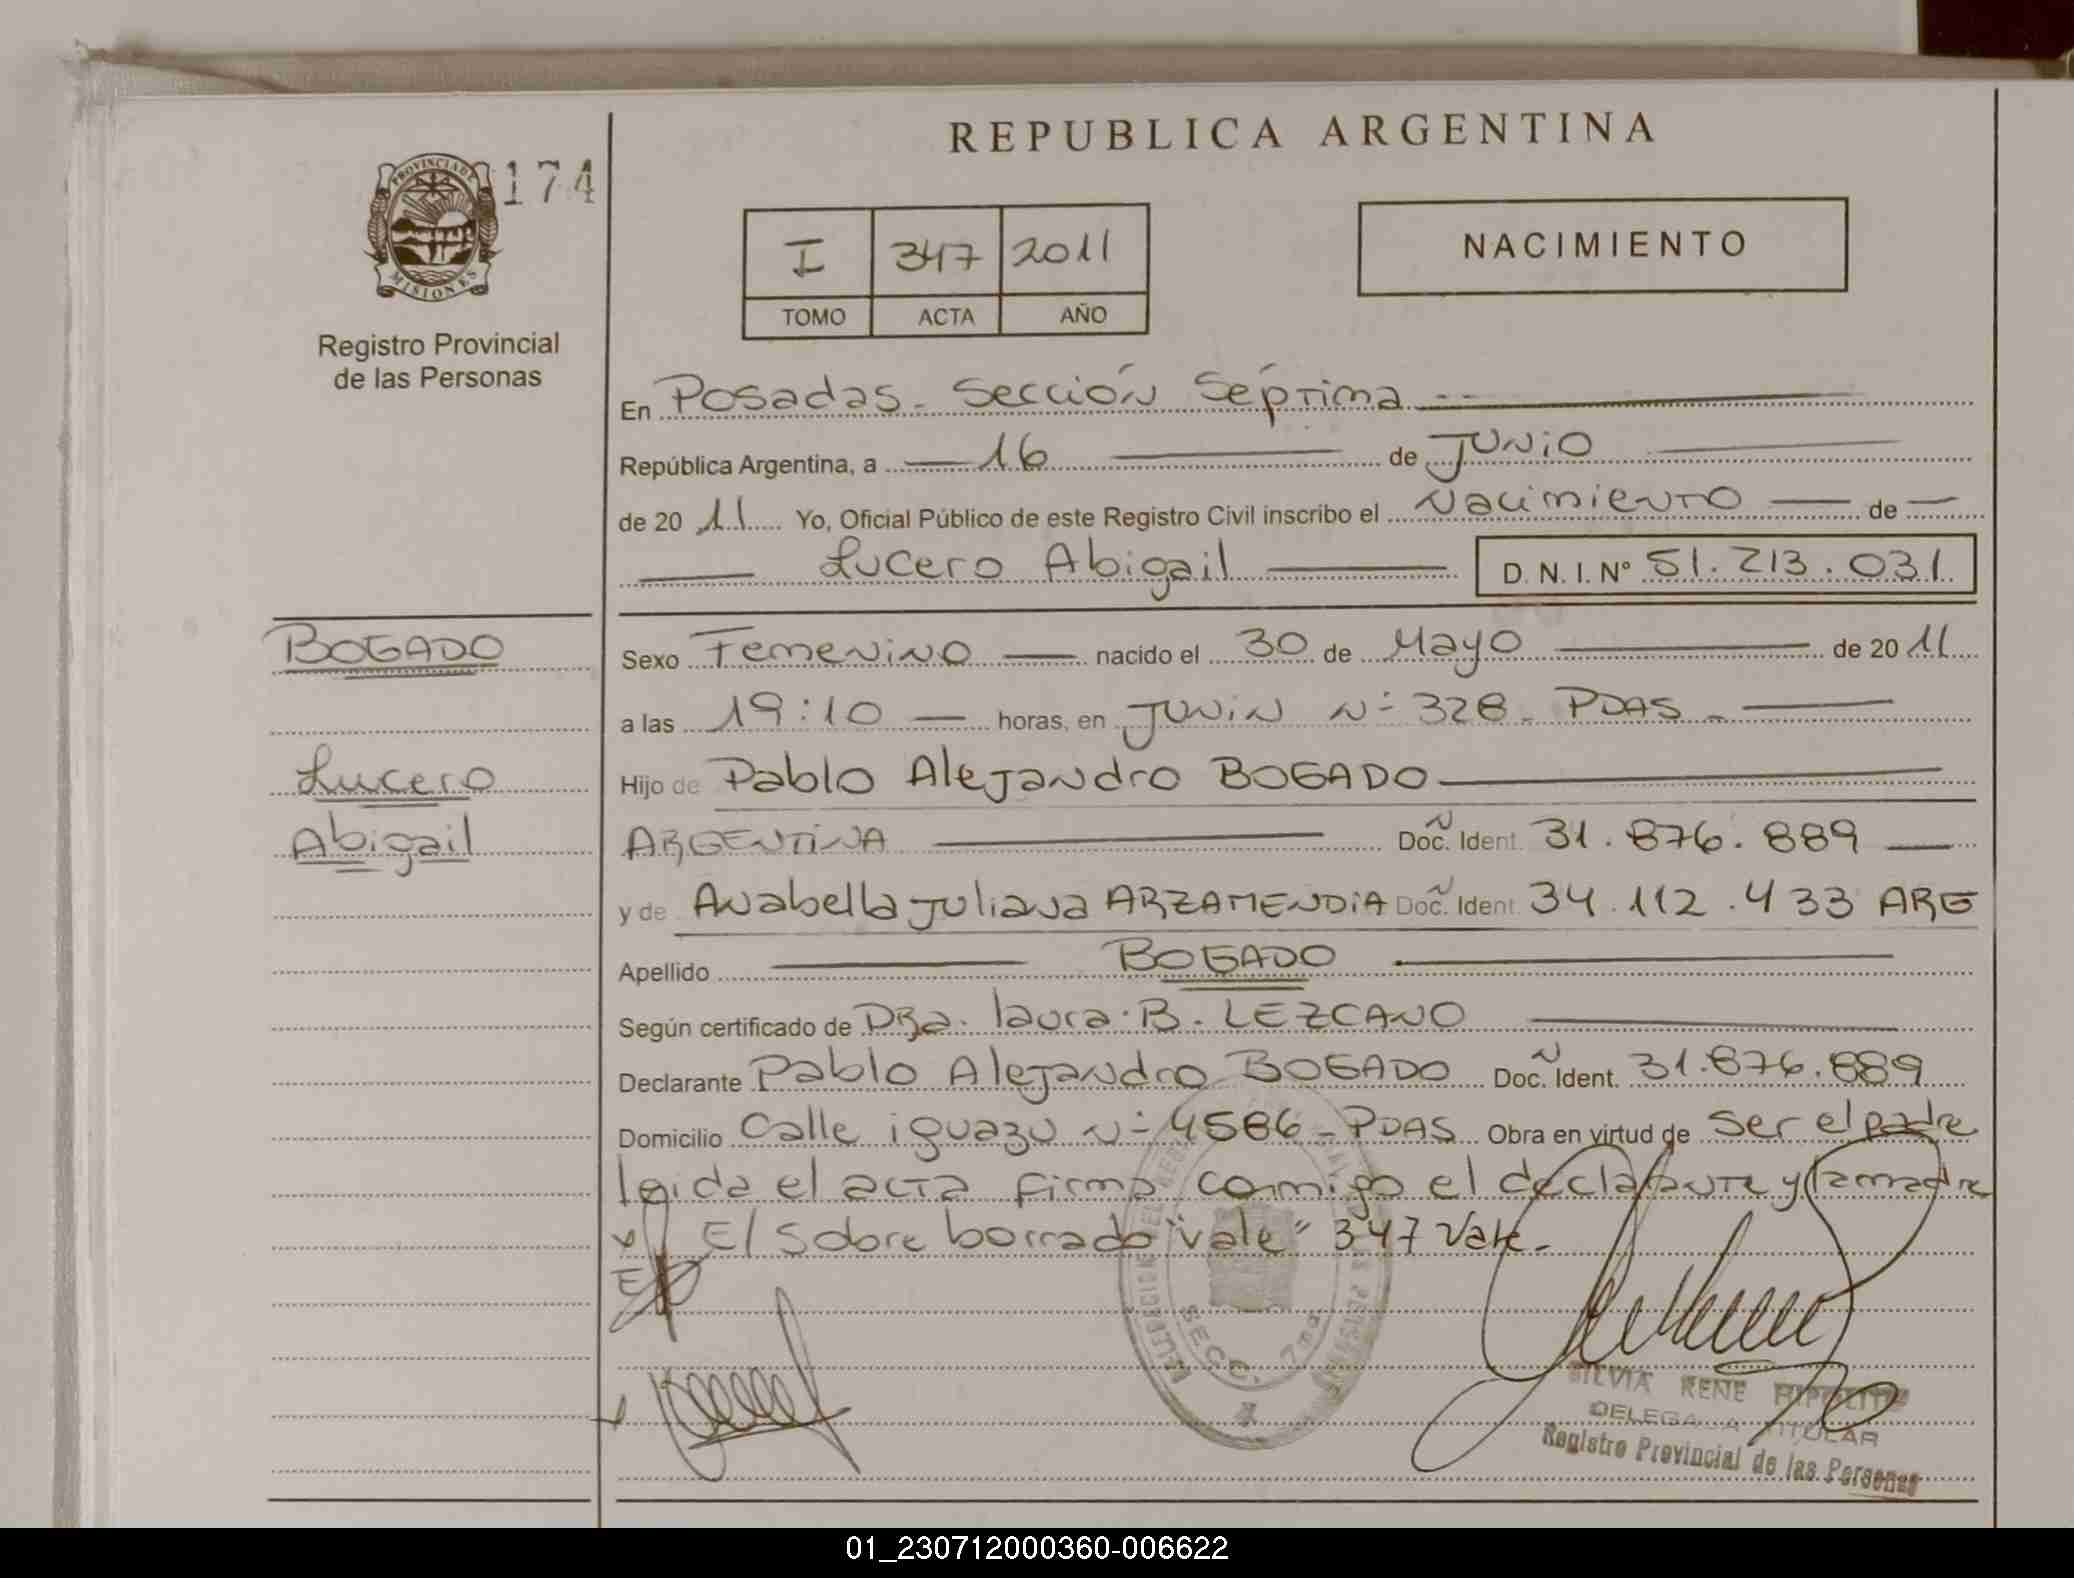 REPUBLICA ARGENTINA
PROVINCIA DE MISIONES
174
Registro Provincial
de las Personas
I 347 2011
TOMO ACTA AÑO
NACIMIENTO
En Posadas - Sección Séptima
República Argentina, a 16 de Junio
de 2011 Yo, Oficial Público de este Registro Civil inscribo el Nacimiento de
Lucero Abigail D.N.I.Nº 51.213.031
BOGADO
Lucero
Abigail
Sexo Femenino nacido el 30 de Mayo de 2011
a las 19:10 horas, en Junin Nº 328 - PDAS -
Hijo de Pablo Alejandro BOGADO
ARGENTINA Doc. Ident. 31.876.889
y de Anabella Juliana ARZAMENDIA Doc. Ident. 34.112.433 ARG
Apellido BOGADO
Según certificado de DRa. laura B. LEZCANO
Declarante Pablo Alejandro BOGADO Doc. Ident. 31.876.889
Domicilio Calle iguazu Nº 4586 - PDAS Obra en virtud de ser el padre
leida el acta firma conmigo el declarante y la madre
El sobre borrado "vale" 347 Vale.-
SECC. 7ma
SILVIA RENE HIPOLITO
DELEGADA TITULAR
Registro Provincial de las Personas
01_230712000360-006622